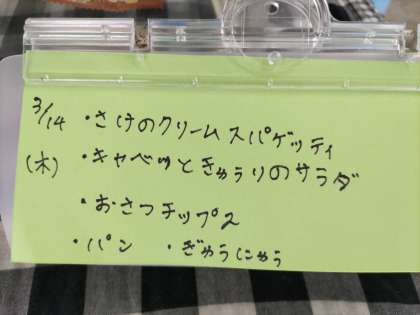 3/14 ・さけのクリームスパゲッティ
(木) ・キャベツときゅうりのサラダ
・おさつチップ2
・パン ・ぎゅうにゅう